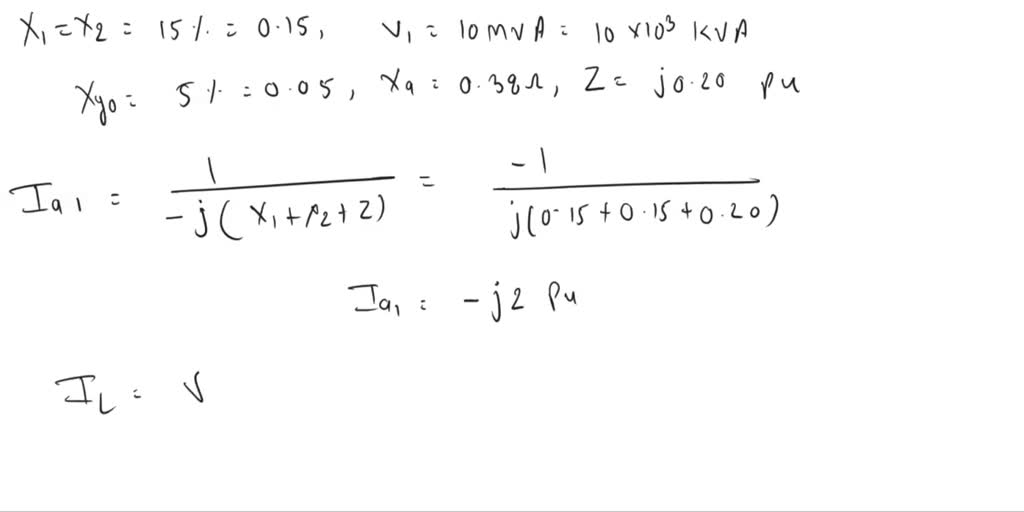 X₁ = X₂ = 15 % = 0.15, V₁ = 10 MVA = 10 x10³ KVA
Xg0 = 5 % = 0.05, Xa = 0.38Ω, Z = j0.20 pu
Ia1 = 1 / -j(X₁+X₂+Z) = -1 / j(0.15+0.15+0.20)
Ia1 = -j2 Pu
IL = V